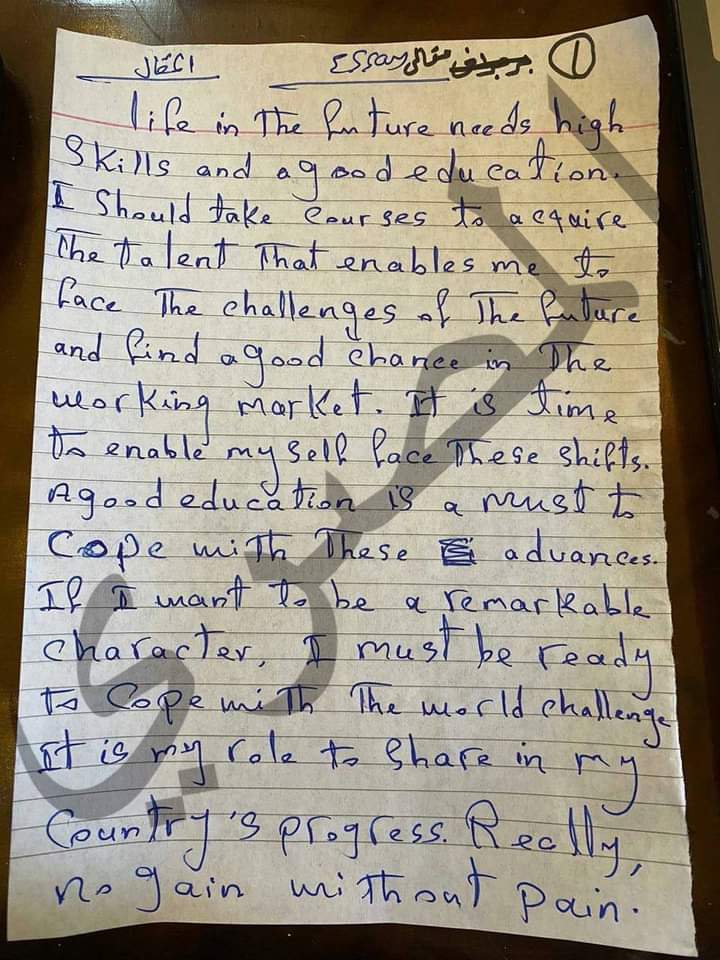 ① مقالى Essay
life in The future needs high
Skills and a good education.
I Should take courses to acquire
The talent That enables me to
face The challenges of The future
and find a good chance in The
working market. It is time
to enable my self face These shifts.
A good education is a must to
Cope with These advances.
If I want to be a remarkable
character, I must be ready
to Cope with The world challenge
It is my role to Share in my
Country's progress. Really,
no gain without pain.